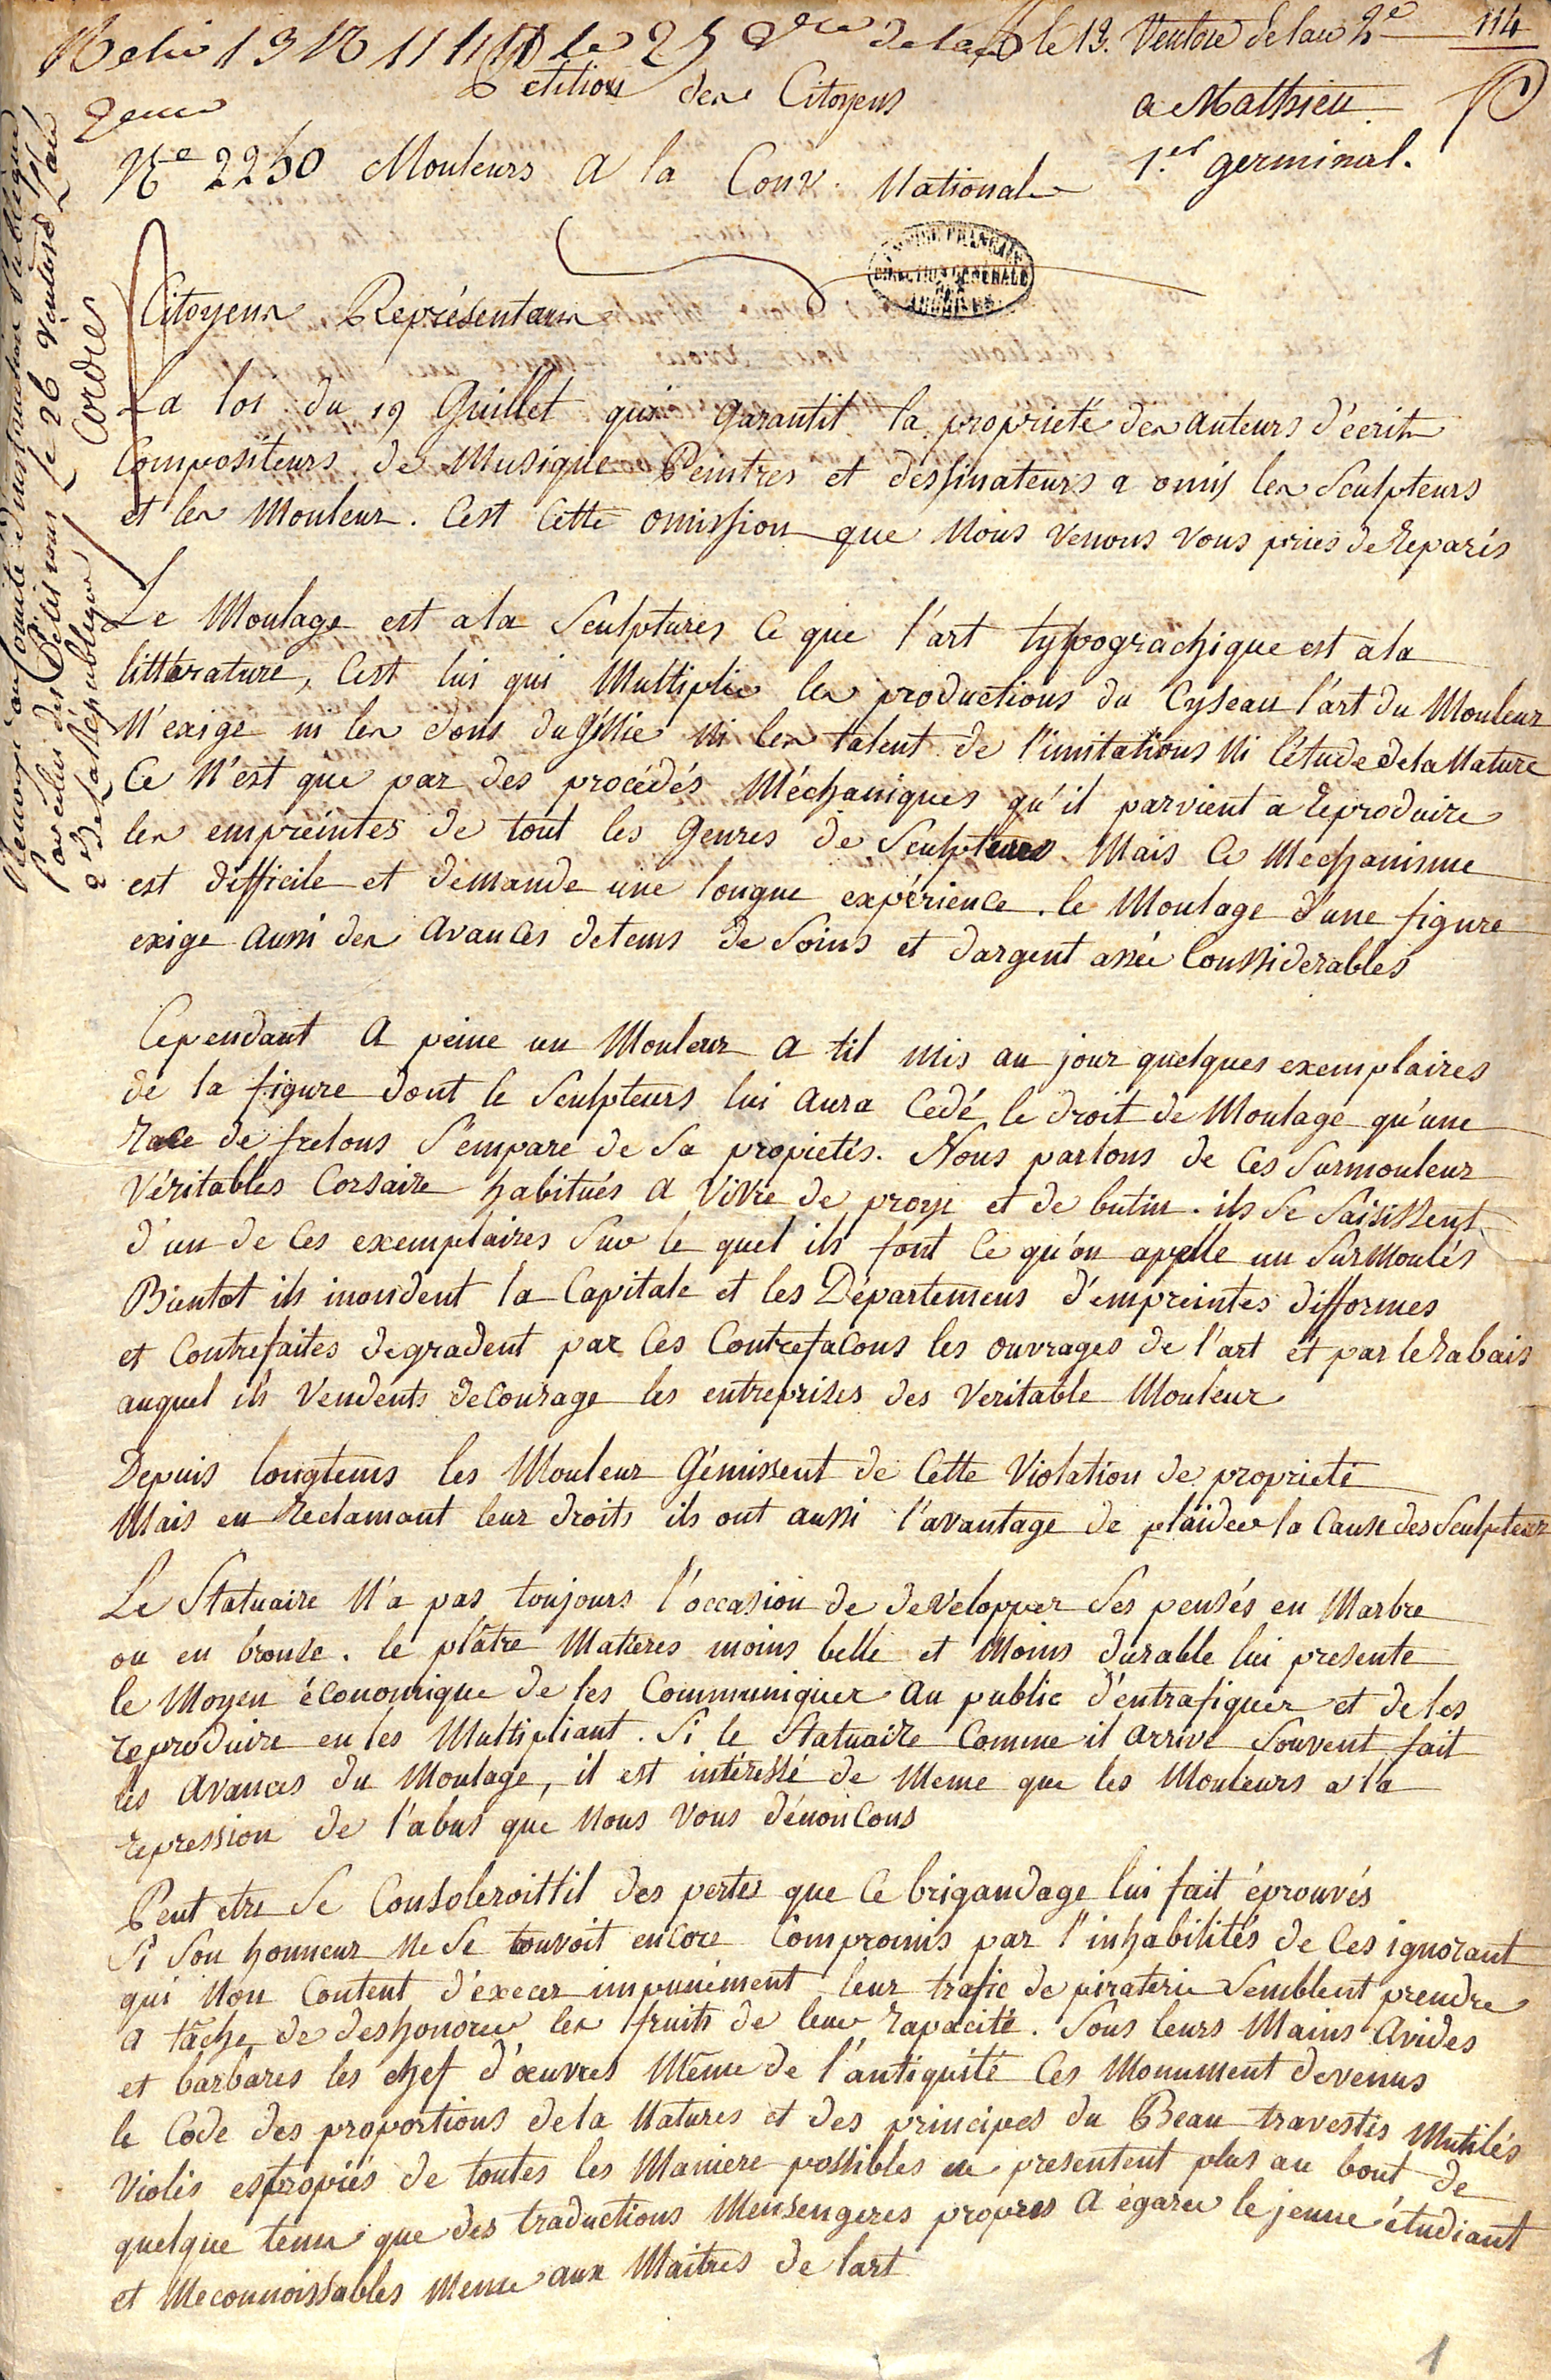 le 19. Ventose de lan 2e 114
Petition des Citoyens a Mathieu
2eme
No 2250 Mouleurs a la Conv. National 1.er germinal.
DIRECTION GÉNÉRALE DES ARCHIVES
Renvoyé au Comité d'instruction Publique
par celui des Pétitions le 26 Ventose l'an
2e de la République Cordier
Citoyens Représentans
La loi du 19 Guillet qui garantit la proprieté des auteurs d'écrits
Compositeurs de Musique Peintres et dessinateurs a omis les Sculpteurs
et les Mouleur. Cest Cette omission que Nous venons vous priés de Reparés
Le Moulage est a la Sculptures Ce que l'art typograchique est a la
littérature, Cest lui qui Multiplie les productions du Cyseau l'art du Mouleur
N'exige ni les dons du génie Ni les talent de l'imitations Ni l'étude de la Nature
Ce N'est que par des procédés Méchaniques qu'il parvient a Reproduire
les empreintes de tout les Genres de Sculptures. Mais Ce Mechanisme
est difficile et demande une longue expérience. le Moulage d'une figure
exige aussi des avances de tems de Soins et dargent assée Conssiderables
Cependant a peine un Mouleur a til mis au jour quelques exemplaires
de la figure dont le Sculpteurs lui aura Cedé le droit de Moulage qu'une
Race de frelons S'empare de Sa propietés. Nous parlons de Ces Surmouleur
Véritables Corsaire habitués a Vivre de proye et de butin. ils Se Saisissent
d'un de Ces exemplaires Sur le quel ils font Ce qu'on apelle un Surmoulés
Bientot ils inondent la Capitale et les Départemens d'empreintes difformes
et Contrefaites degradent par Ces Contrefacons les ouvrages de l'art et par le Rabais
auquel ils Vendents decourage les entreprises des Veritable Mouleur
Depuis longtems les Mouleur Gémissent de Cette Violation de proprieté
Mais en Reclamant leur droits ils ont aussi l'avantage de plaider la Cause des Sculpteur
Le Statuaire N'a pas toujours l'occasion de developper Ses pensés en Marbre
ou en bronze. le plâtre Matieres moins belle et Moins durable lui presente
le Moyen économique de les Communiquer au public d'entrafiquer et de les
reproduire en les Multipliant. Si le Statuaire Comme il arrive Souvent fait
les avances du Moulage, il est intéressé de Meme que les Mouleurs a la
repression de l'abus que Nous Vous dénoncons
Peut etre Se Consoleroittil des pertes que Ce brigandage lui fait éprouvés
Si Son honneur Ne Se touvoit encore Compromis par l'inhabilités de Ces ignorant
qui Non Content d'execer impunément leur trafic de piraterie Semblent prendre
a tâche de deshonorer les fruits de leur Rapacité. Sous leurs Mains avides
et barbares les chef d'œuvres Même de l'antiquité Ces Monument devenus
le Code des proportions de la Natures et des principes du Beau travestis Mutilés
Violés estropiés de toutes les Maniere possibles ne presentent plus au bout de
quelque tems que des traductions Mensengeres propres a égarer le jeune étudiant
et Meconnoissables Meme aux Maitres de lart
1